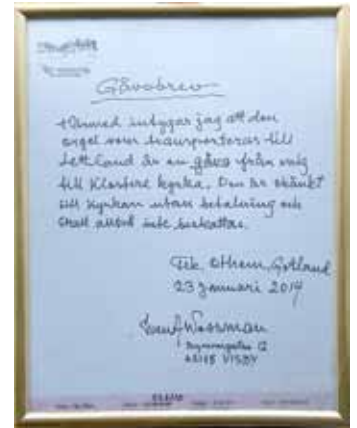 Gåvobrev
Härmed intygar jag att den
orgel som transporteras till
Lettland är en gåva från mig
till Klostere kyrka. Den är skänkt
till kyrkan utan betalning och
skall alltså inte beskattas.
Othem, Gotland
23 januari 2014
VISBY